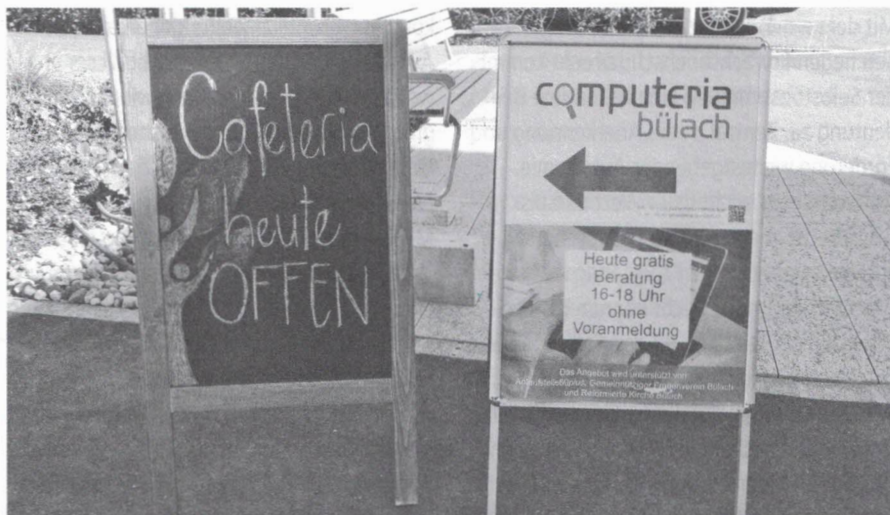 Cafeteria
heute
OFFEN
computeria
bülach
Heute gratis
Beratung
16-18 Uhr
ohne
Voranmeldung
Das Angebot wird unterstützt von
Gemeinnütziger Frauenverein Bülach
und Reformierte Kirche Bülach